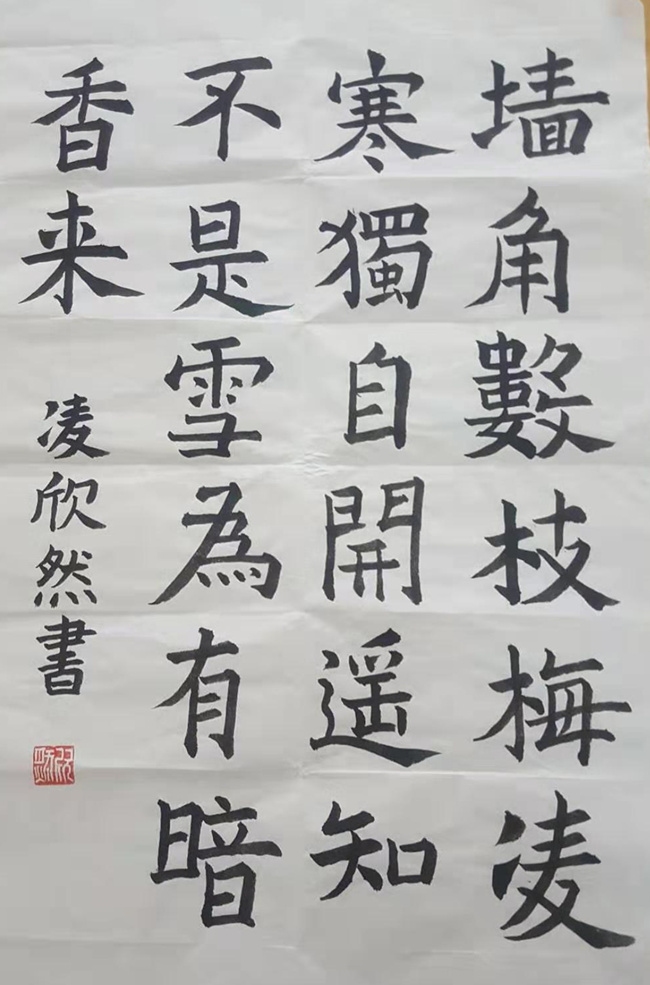 墙角數枝梅凌
寒獨自開遥知
不是雪為有暗
香来
凌欣然書